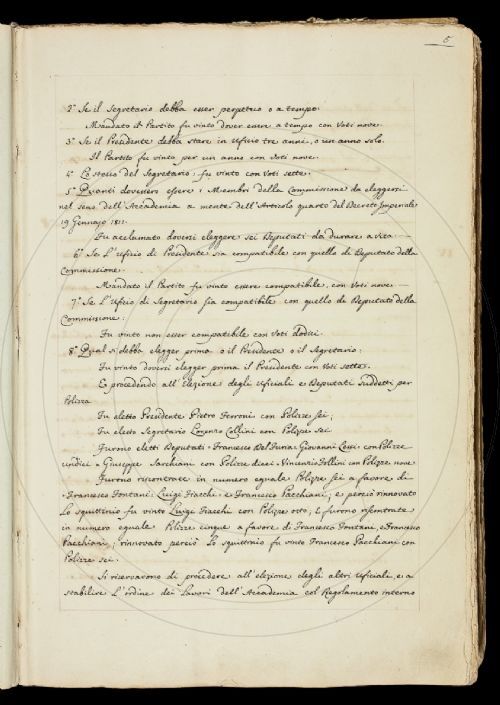 5
2.° Se il Segretario debba esser perpetuo o a tempo.
Mandato il Partito fu vinto dover essere a tempo con Voti nove.
3.° Se il Presidente debba stare in Ufizio tre anni, o un anno solo.
Il Partito fu vinto per un anno con Voti nove.
4.° Lo stesso del Segretario: fu vinto con Voti sette.
5.° Quanti dovessero essere i Membri della Commissione da eleggersi
nel seno dell'Accademia a mente dell'Articolo quarto del Decreto Imperiale
19 Gennajo 1811.
Fu acclamato doversi eleggere sei Deputati da durare a vita.
6.° Se L'Ufizio di Presidente sia compatibile con quello di Deputato della
Commissione.
Mandato il Partito fu vinto essere compatibile, con Voti nove.
7.° Se L'Ufizio di Segretario sia compatibile con quello di Deputato della
Commissione:
Fu vinto non esser compatibile con Voti dodici.
8.° Qual si debba elegger prima o il Presidente o il Segretario:
Fu vinto doversi elegger prima il Presidente con Voti sette.
E procedendo all'elezione degli Ufiziali e Deputati suddetti per
Polizza
Fu eletto Presidente Pietro Ferroni con Polizze sei;
Fu eletto Segretario Lorenzo Collini con Polizze sei
Furono eletti Deputati: Francesco Del Furia: Giovanni Lessi con Polizze
undici: Giuseppe Sarchiani con Polizze dieci: Vincenzio Follini con Polizze nove
Furono riscontrate in numero eguale Polizze sei a favore di
Francesco Fontani, Luigi Fiacchi e Francesco Pacchiani; e perciò rinnovato
Lo squittinio fu vinto Luigi Fiacchi con Polizze otto; E furono riscontrate
in numero eguale Polizze cinque a favore di Francesco Fontani, e Francesco
Pacchiani; rinnovato perciò Lo squittinio fu vinto Francesco Pacchiani con
Polizze sei.
Si riservarono di procedere all'elezione degli altri Ufiziali, e a
stabilire L'ordine dei Lavori dell'Accademia col Regolamento interno